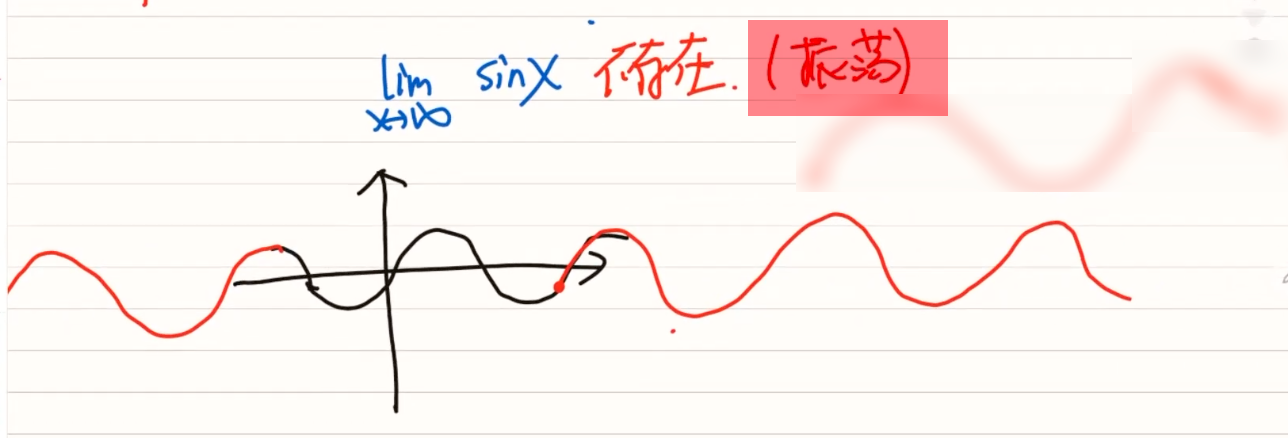 lim sinx 不存在.(振荡)
x→∞